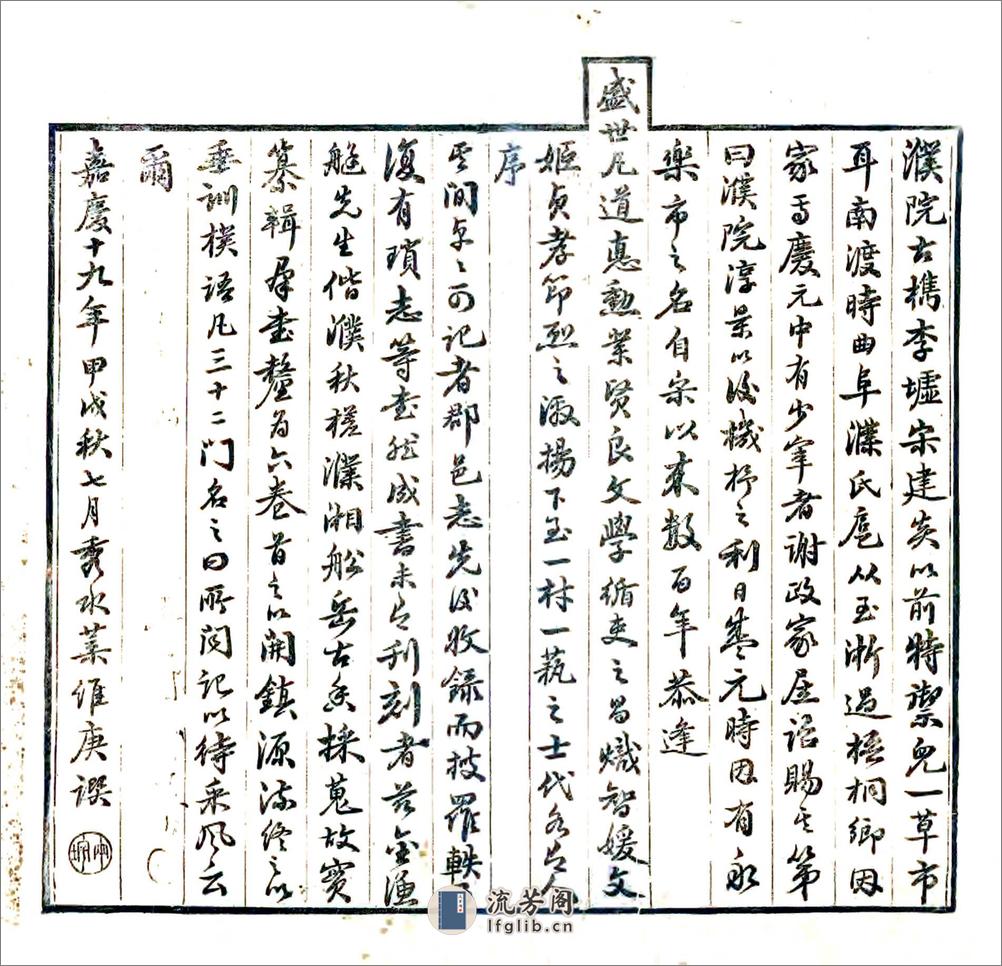 濮院古檇李墟宋建炎以前特禦兒一草市
耳南渡時曲阜濮氏扈从至浙過梧桐鄉因
家焉慶元中有少宰者謝政家居詔賜其第
曰濮院淳景以後機杼之利日盛元時因有永
樂市之名自宋以来数百年恭逢
盛世凡道惪勳業贤良文學循吏之昌熾智媛文
姬貞孝節烈之激揚下至一材一萟之士代各
序
云间卓之可记者郡邑志先後收錄而披羅軼
復有瑣志等書然成書未之刊刻者茲金
艇先生偕濮秋槎濮湘船岳古香採蒐故實
纂輯群書釐为六卷首之以開鎮源流終之以
垂訓樸语凡三十二门名之曰所闻记以待采风云
爾
嘉慶十九年甲戌秋七月秀水葉維庚譔
流芳阁
lfglib.cn